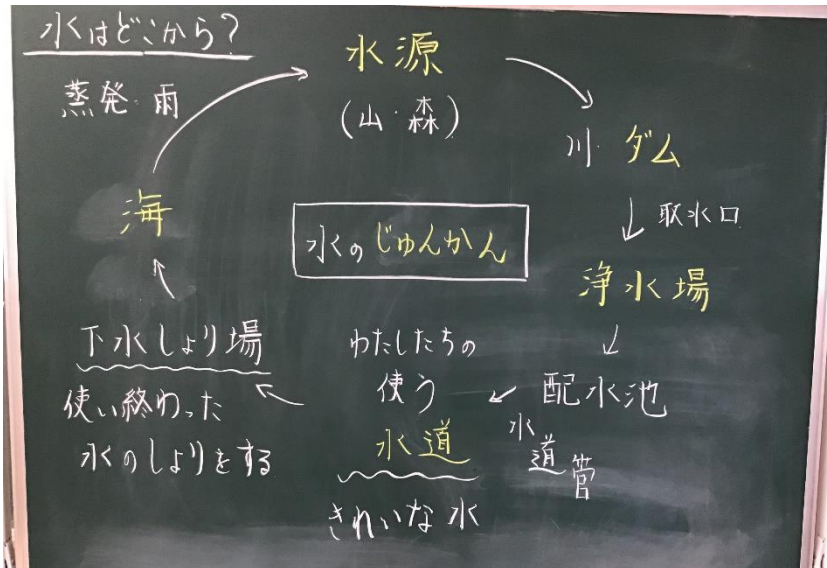 水はどこから?
蒸発・雨
水源
(山・森)
川・ダム
取水口
浄水場
配水池
水道管
わたしたちの
使う
水道
きれいな水
下水しょり場
使い終わった
水のしょりをする
海
水のじゅんかん